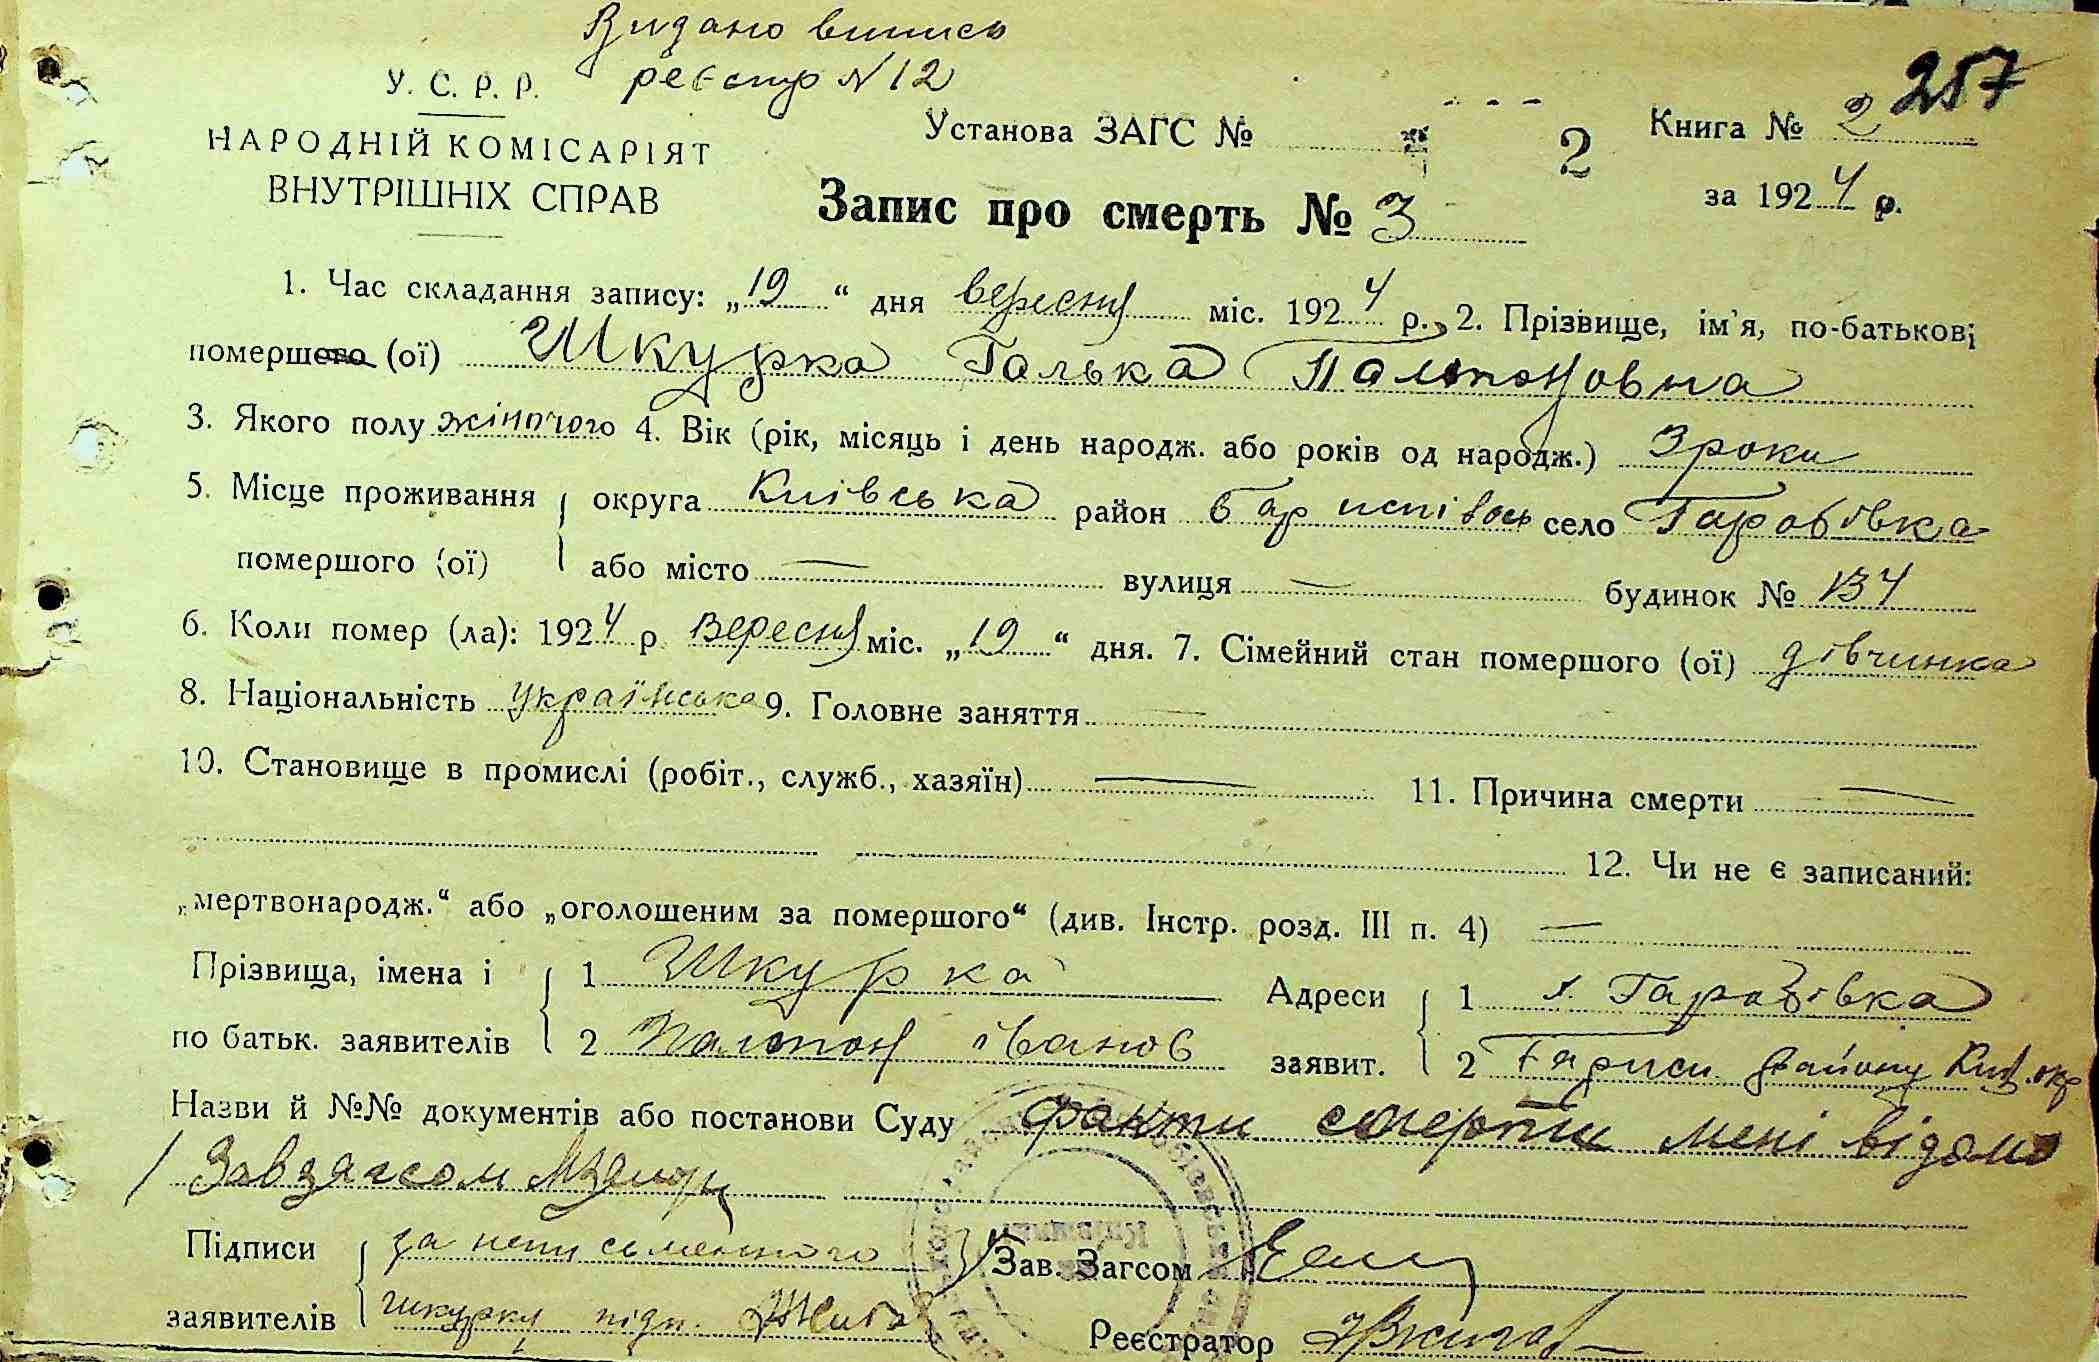 Видано випись
У. С. Р. Р. реєстр N 12
257
НАРОДНІЙ КОМІСАРІЯТ
ВНУТРІШНІХ СПРАВ
Установа ЗАГС № 2
Книга № 2
за 1924 р.
Запис про смерть № 3
1. Час складання запису: „19“ дня вересня міс. 1924 р., 2. Прізвище, ім'я, по-батькові
помершого (ої) Шкурка Галька Палтоновна
3. Якого полу жіночого 4. Вік (рік, місяць і день народж. або років од народж.) 3 роки
5. Місце проживання округа Київська район село
помершого (ої) або місто — вулиця — будинок № 134
6. Коли помер (ла): 1924 р. Вересня міс. „19“ дня. 7. Сімейний стан помершого (ої) дівчинка
8. Національність українська 9. Головне заняття —
10. Становище в промислі (робіт., служб., хазяїн) — 11. Причина смерти —
12. Чи не є записаний:
„мертвонародж.“ або „оголошеним за помершого“ (див. Інстр. розд. III п. 4) —
Прізвища, імена і 1 Шкурка Адреси 1
по батьк. заявителів 2 Палтон іванов заявит. 2 району Київ. окр
Назви й №№ документів або постанови Суду факти смерти мені відомо
Завзагсом
Підписи за неписьменного Зав. Загсом
заявителів Шкурку підп. Реєстратор